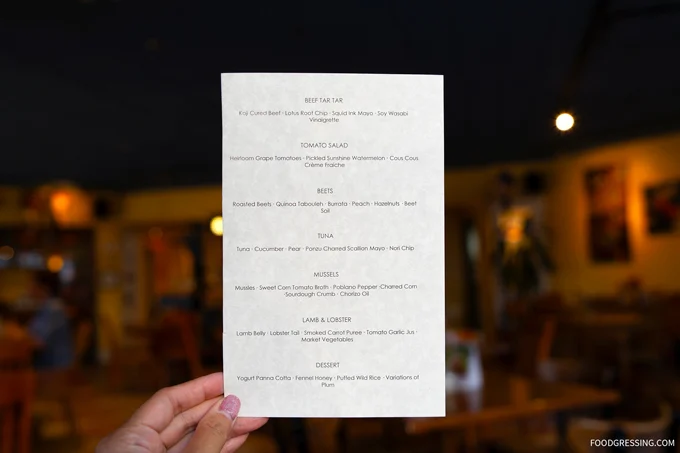 BEEF TAR TAR
Koji Cured Beef · Lotus Root Chip · Squid Ink Mayo · Soy Wasabi
Vinaigrette
TOMATO SALAD
Heirloom Grape Tomatoes · Pickled Sunshine Watermelon · Cous Cous
Crème Fraiche
BEETS
Roasted Beets · Quinoa Tabouleh · Burrata · Peach · Hazelnuts · Beet
Soil
TUNA
Tuna · Cucumber · Pear · Ponzu Charred Scallion Mayo · Nori Chip
MUSSELS
Mussles · Sweet Corn Tomato Broth · Poblano Pepper ·Charred Corn
·Sourdough Crumb · Chorizo Oil
LAMB & LOBSTER
Lamb Belly · Lobster Tail · Smoked Carrot Puree · Tomato Garlic Jus ·
Market Vegetables
DESSERT
Yogurt Panna Cotta · Fennel Honey · Puffed Wild Rice · Variations of
Plum
FOODGRESSING.COM